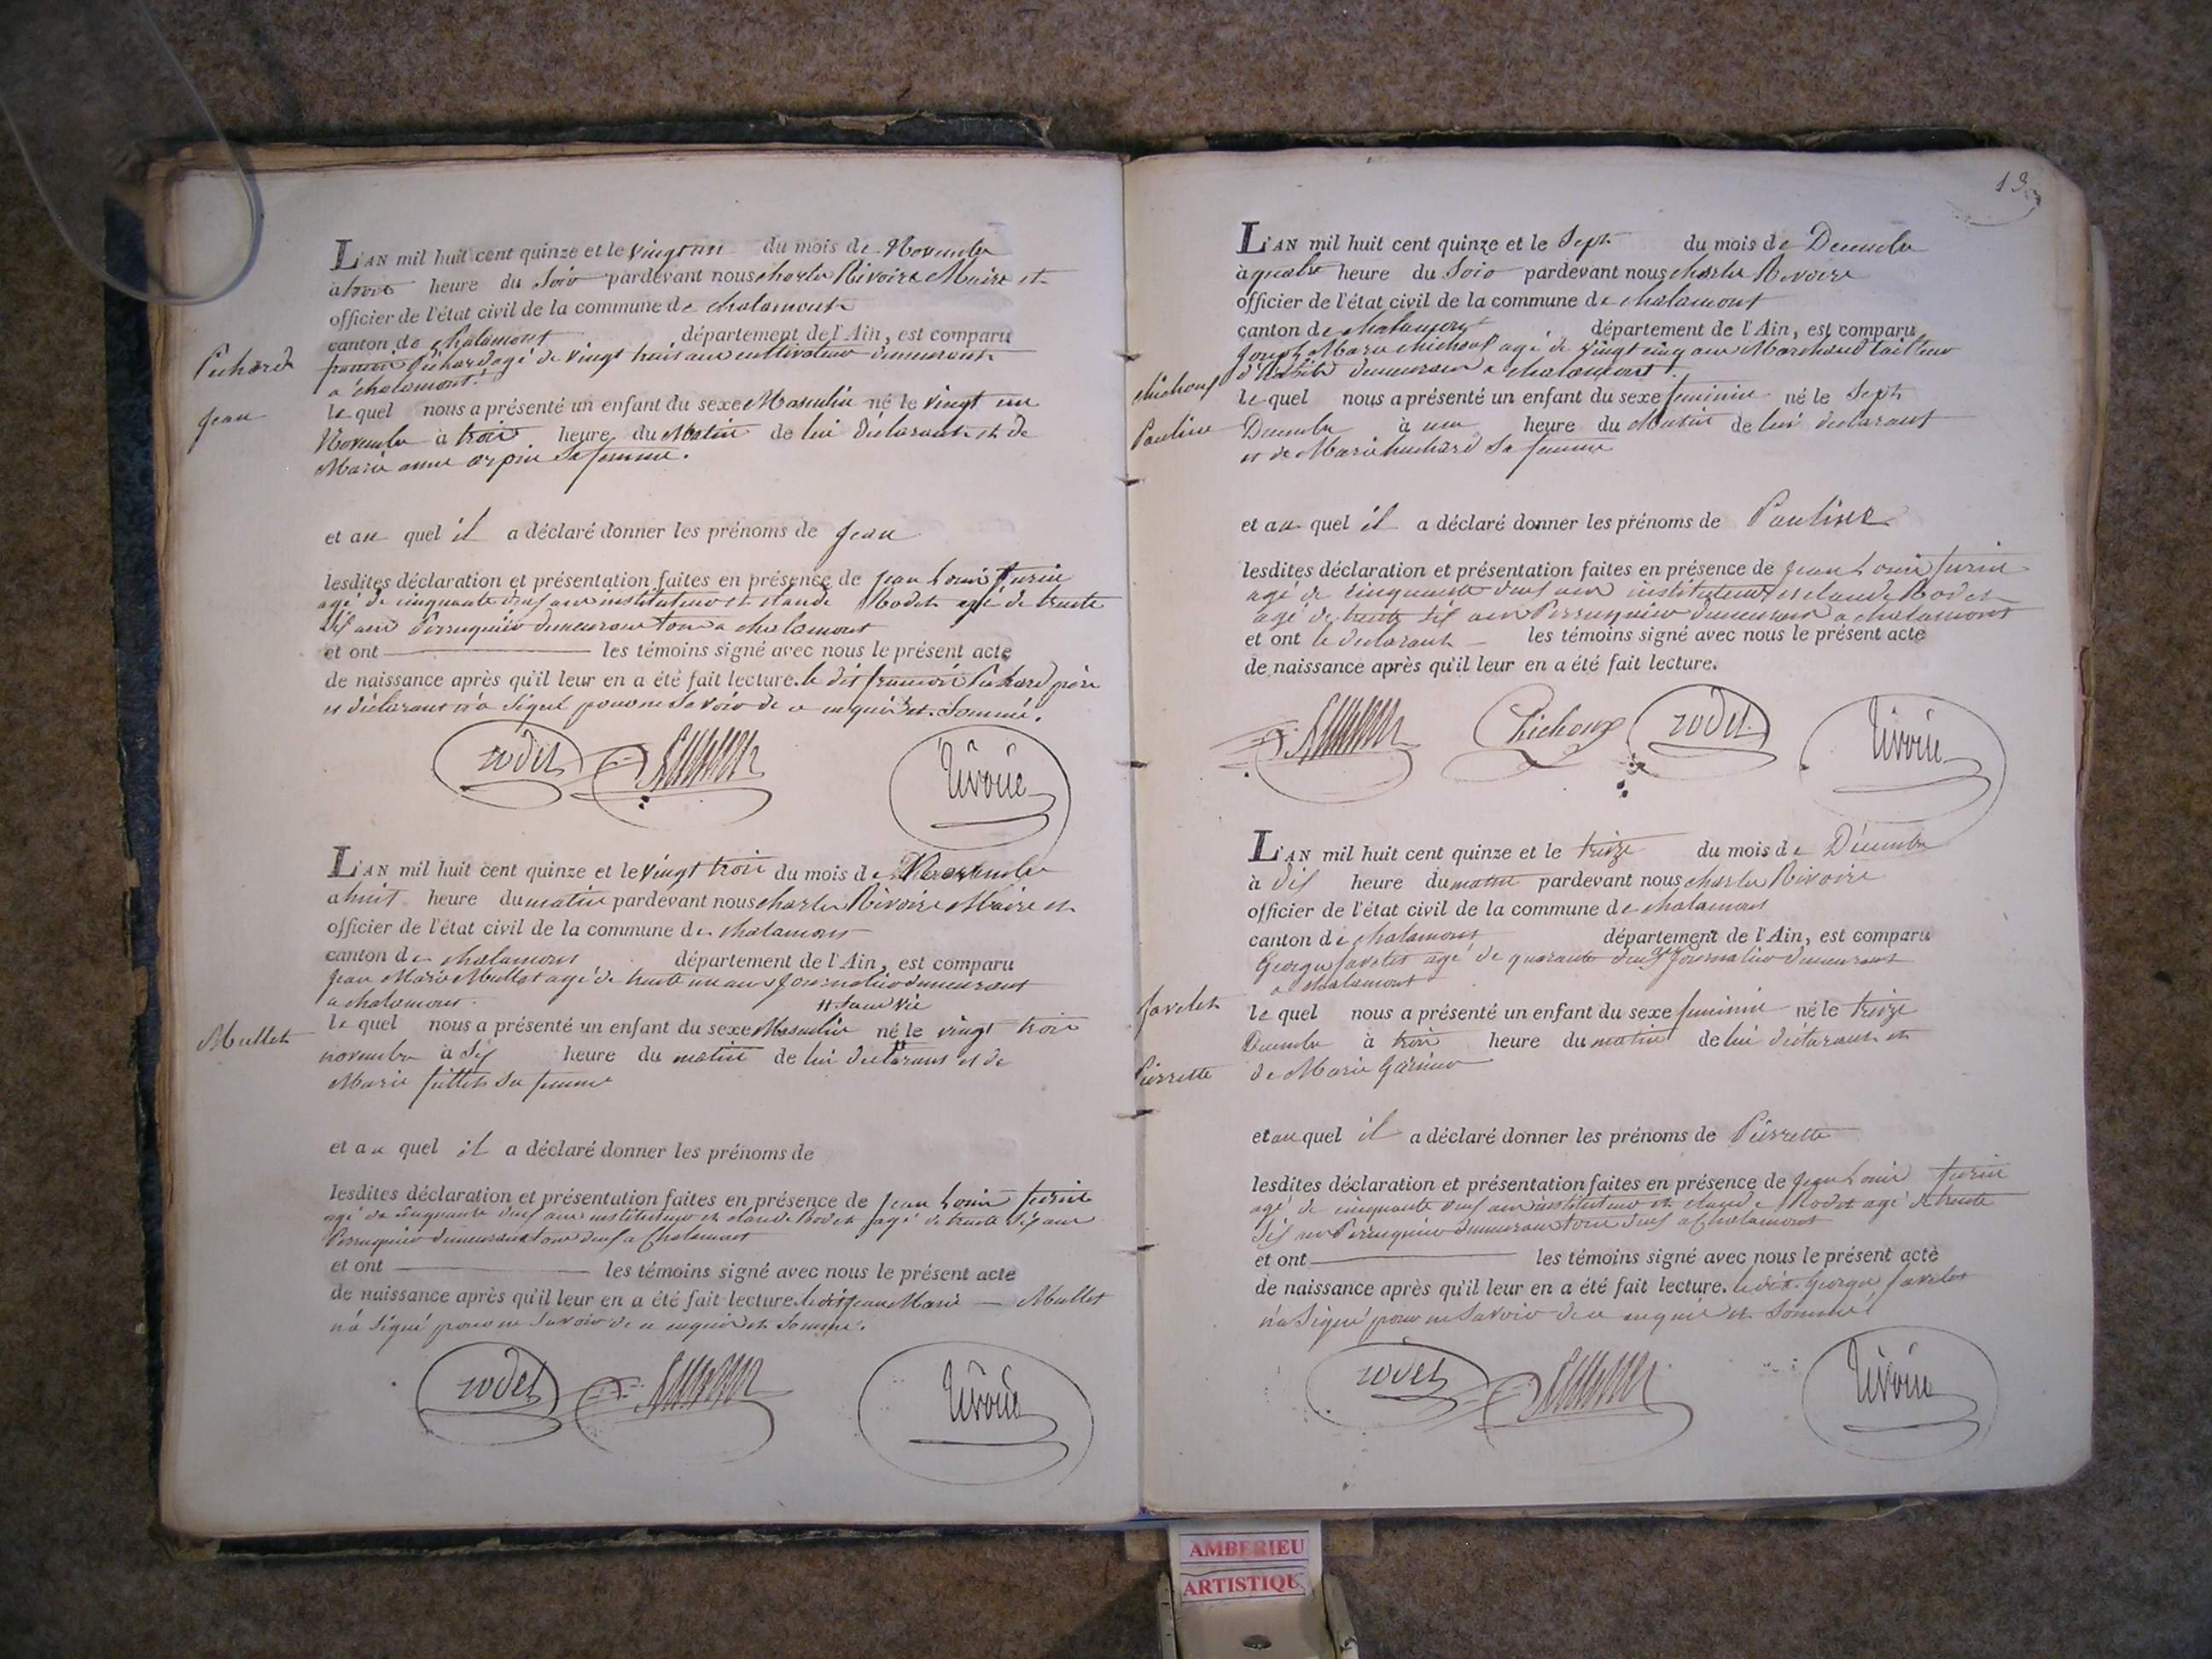 L'AN mil huit cent quinze et le vingt un du mois de Novembre
à trois heure du soir pardevant nous charles Rivoire Maire et
officier de l'état civil de la commune de chalamont
canton de chalamont département de l'Ain, est comparu
françois Pichard agé de vingt trois ans cultivateur demeurant
a chalamont.
Pichard
le quel nous a présenté un enfant du sexe Masculin né le vingt un
Jean
Novembre à trois heure du Matin de lui declarant et de
Marie anne sa femme.
et au quel il a déclaré donner les prénoms de jean
lesdites déclaration et présentation faites en présence de jean Louis furin
agé de cinquante deux ans instituteur et claude Rodet agé de trente
dix ans Perruquier demeurant tous a chalamont
et ont les témoins signé avec nous le présent acte
de naissance après qu'il leur en a été fait lecture. le dit françois Pichard père
et déclarant n'a signé pour ne savoir de ce enquis et sommé.
rodet
rivoire
L'AN mil huit cent quinze et le vingt trois du mois de Novembre
a huit heure du matin pardevant nous charles Rivoire Maire et
officier de l'état civil de la commune de chalamont
canton de chalamont département de l'Ain, est comparu
jean Marie Mullet agé de trente un ans journalier demeurant
a chalamont.
# sans vie
le quel nous a présenté un enfant du sexe Masculin né le vingt trois
Mullet
novembre à six heure du matin # de lui declarant et de
Marie sa femme
et au quel il a déclaré donner les prénoms de
lesdites déclaration et présentation faites en présence de jean Louis furin
agé de cinquante deux ans instituteur et claude Rodet agé de trente dix ans
Perruquier demeurant tous deux a Chalamont
et ont les témoins signé avec nous le présent acte
de naissance après qu'il leur en a été fait lecture. le dit jean Marie Mullet
n'a signé pour ne savoir de ce enquis et sommé.
rodet
rivoire
13
L'AN mil huit cent quinze et le sept du mois de Decembre
à quatre heure du soir pardevant nous charles Rivoire
officier de l'état civil de la commune de chalamont
canton de chalamont département de l'Ain, est comparu
Joseph Marie chichoux agé de vingt cinq ans Marchand tailleur
d'habits demeurant a chalamont
chichoux
le quel nous a présenté un enfant du sexe feminin né le sept
Pauline
Decembre à une heure du Matin de lui declarant
et de Marie huchard sa femme
et au quel il a déclaré donner les prénoms de Pauline
lesdites déclaration et présentation faites en présence de jean Louis furin
agé de cinquante deux ans instituteur et claude Rodet
agé de trente dix ans Perruquier demeurant a chalamont
et ont le declarant les témoins signé avec nous le présent acte
de naissance après qu'il leur en a été fait lecture.
Chichoux
rodet
rivoire
L'AN mil huit cent quinze et le treize du mois de Décembre
à dix heure du matin pardevant nous charles Rivoire
officier de l'état civil de la commune de chalamont
canton de chalamont département de l'Ain, est comparu
George favelet agé de quarante deux ans journalier demeurant
a chalamont
favelet
le quel nous a présenté un enfant du sexe feminin né le treize
Decembre à trois heure du matin de lui déclarant et
Pierrette
de Marie Garnier
et au quel il a déclaré donner les prénoms de Pierrette
lesdites déclaration et présentation faites en présence de jean Louis furin
agé de cinquante deux ans instituteur et claude Rodet agé de trente
dix ans Perruquier demeurant tous deux a Chalamont
et ont les témoins signé avec nous le présent acte
de naissance après qu'il leur en a été fait lecture. le dit George favelet
n'a signé pour ne savoir de ce enquis et sommé
rodet
rivoire
AMBERIEU
ARTISTIQUE